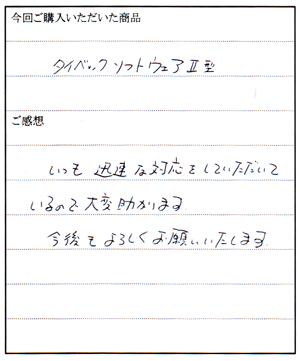 今回ご購入いただいた商品
タイベックソフトウェアⅡ型
ご感想
いつも迅速な対応をしていただいて
いるので大変助かります
今後もよろしくお願いいたします